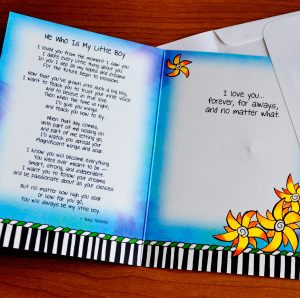 He Who Is My Little Boy
I loved you from the moment I saw you
I adore every little thing about you.
In you I see all my hopes and dreams
For the future begin to blossom.
Now that you've grown into such a big boy,
I want to teach you to trust your inner voice
And to believe in true love
Then when the time is right,
I'll give you wings
And teach you how to fly.
When that day comes,
With part of me holding on
And part of me letting go,
I'll watch you spread your
Magnificent wings and soar.
I know you will become everything
You were ever meant to be –
Smart, strong, and independent.
I want you to follow your dreams
And be passionate about all your choices.
But no matter how high you soar
Or how far you go,
You will always be my little boy.
I love you...
forever, for always,
and no matter what.